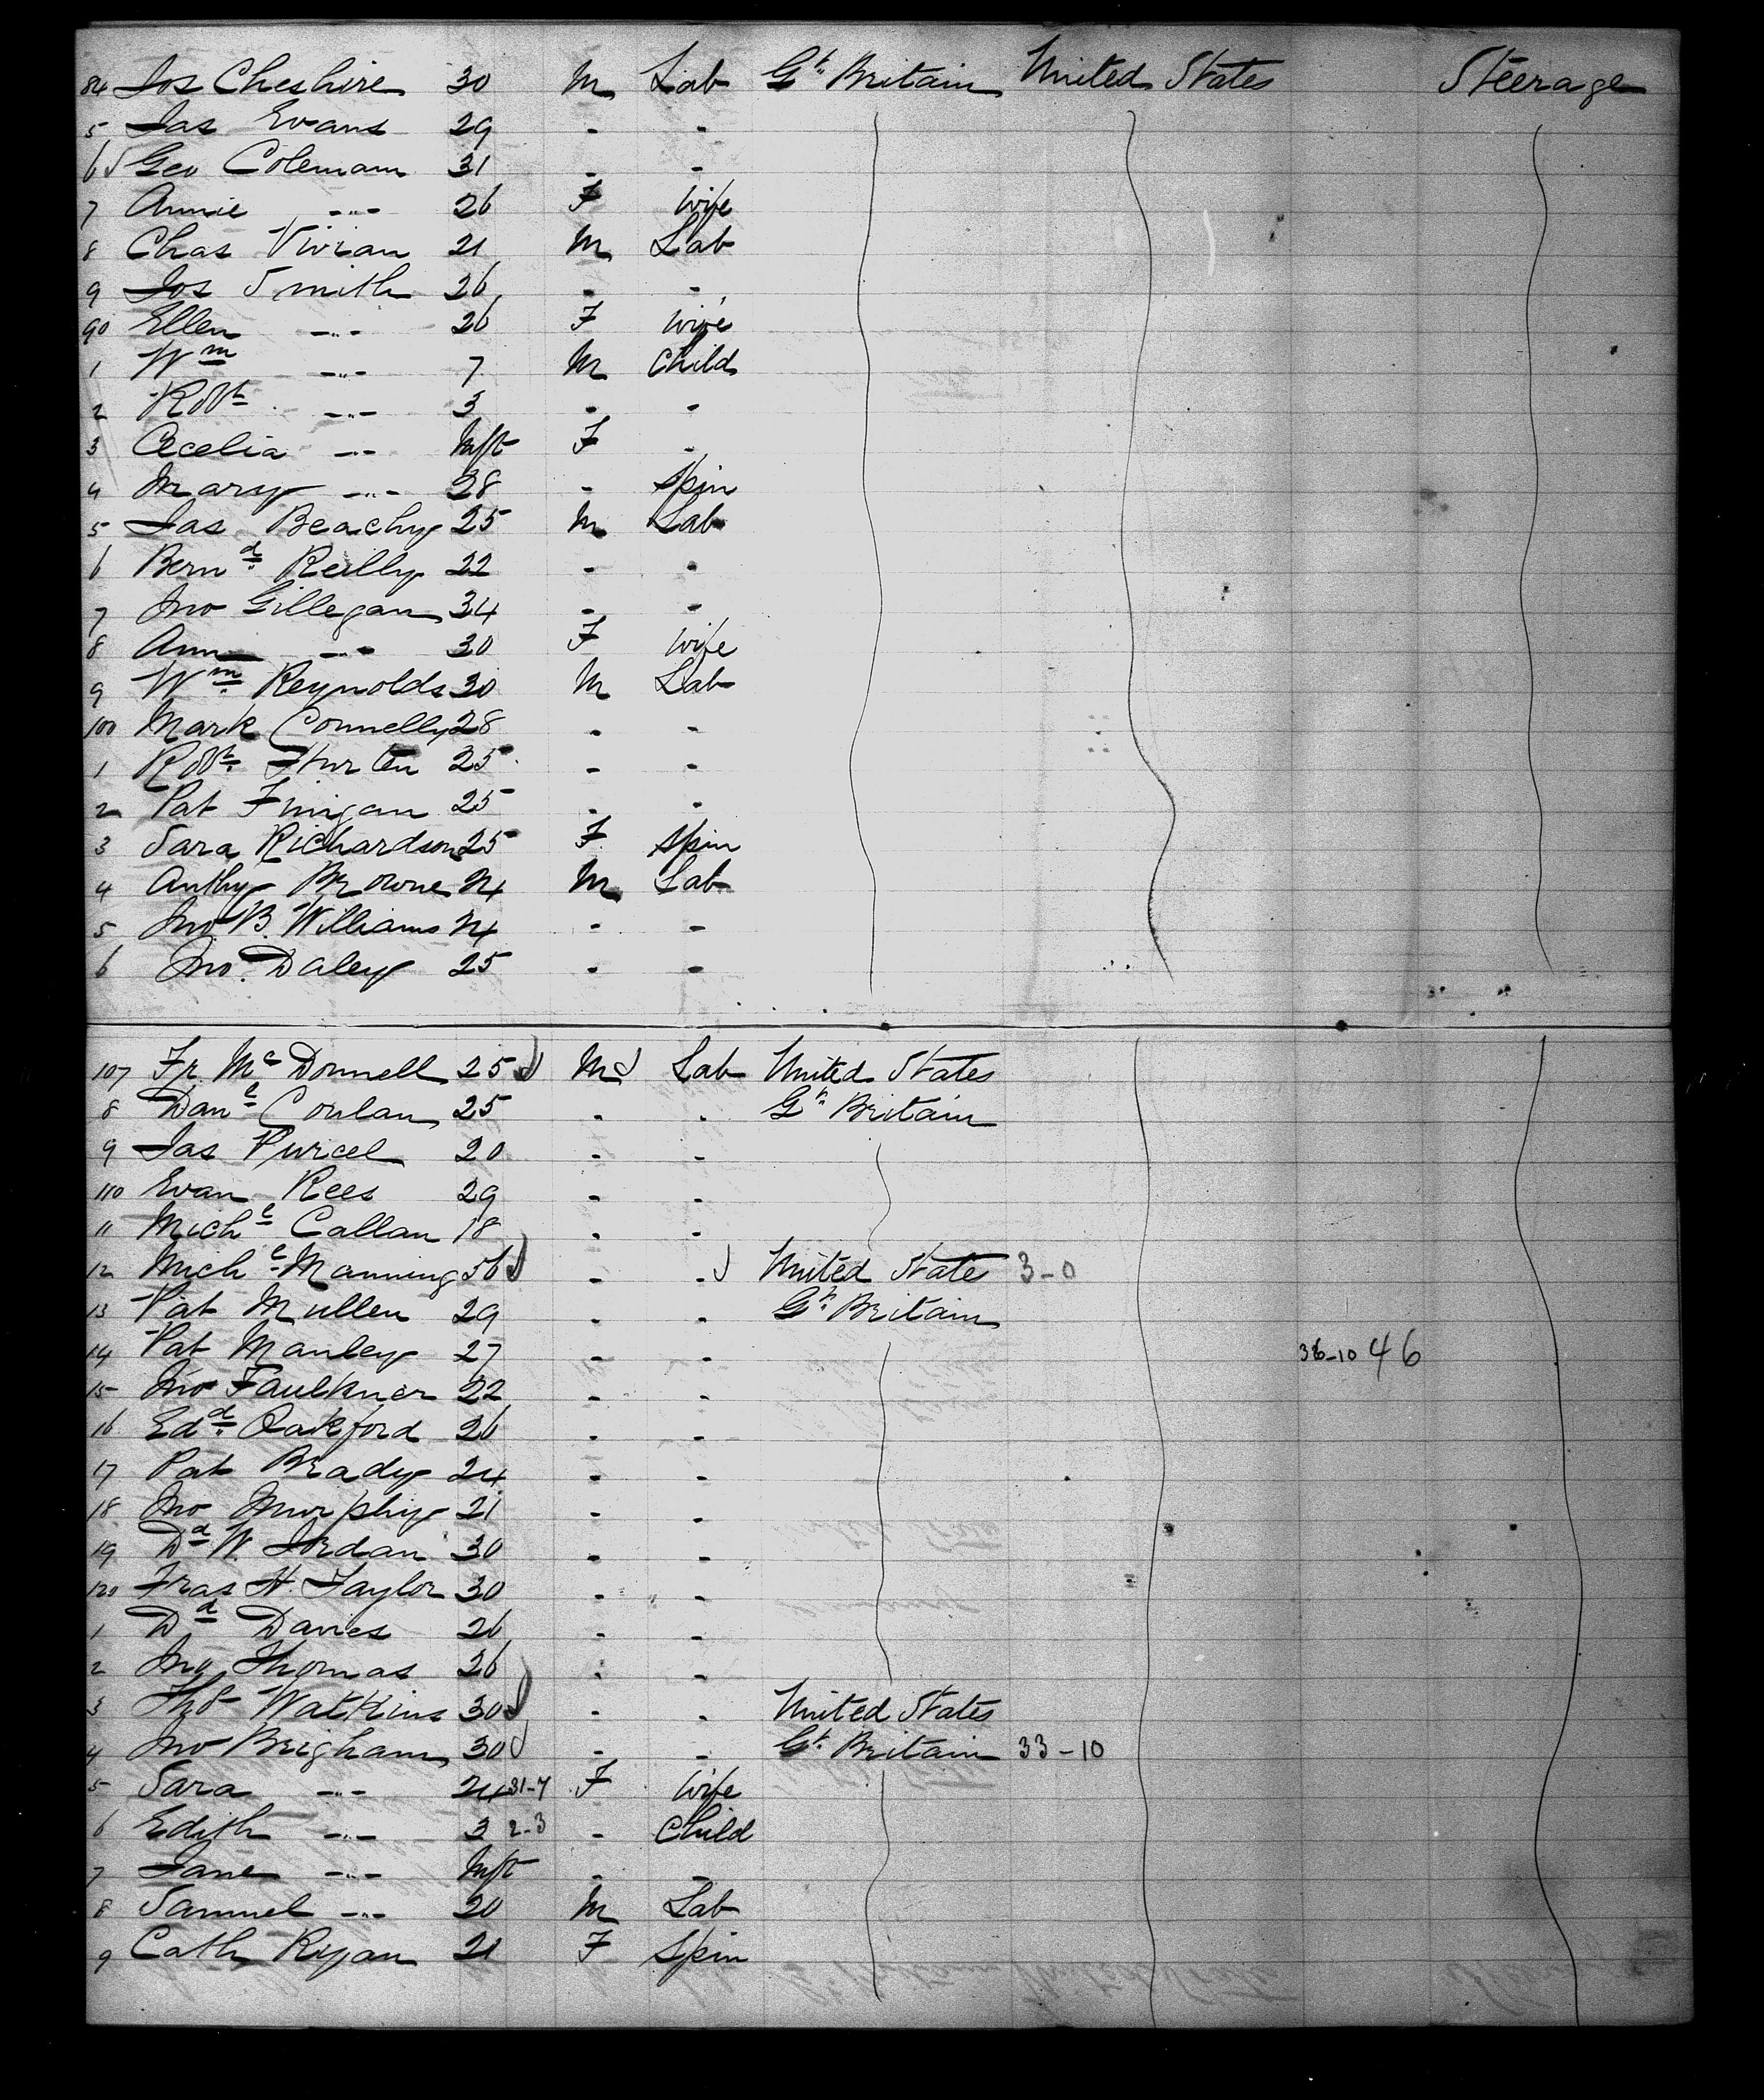 84 Jos Cheshire 30 M Lab Gt Britain United States Steerage
5 Jas Evans 29 - -
6 Geo Coleman 31 - -
7 Annie -"- 26 F Wife
8 Chas Vivian 21 M Lab
9 Jos Smith 26 - -
90 Ellen -"- 26 F Wife
1 Wm -"- 7 M Child
2 Robt -"- 3 - -
3 Cecelia -"- Inft F -
4 Mary -"- 28 - Spin
5 Jas Beachy 25 M Lab
6 Bernd Reilly 22 - -
7 Jno Gillegan 34 - -
8 Ann -"- 30 F Wife
9 Wm Reynolds 30 M Lab
100 Mark Connelly 28 - -
1 Robt 25 - -
2 Pat Finigan 25 - -
3 Sara Richardson 25 F Spin
4 Anthy Browne 24 M Lab
5 Jno B. Williams 24 - -
6 Jno. Daley 25 - -
107 Fr. McDonnell 25 M Lab United States
8 Danl Conlan 25 - - Gt Britain
9 Jas Purcel 20 - -
110 Evan Rees 29 - -
11 Michl Callan 18 - -
12 Michl Manning 56 - - United States 3-0
13 Pat Mullen 29 - - Gt Britain
14 Pat Manley 27 - - 36-10 46
15 Jno Faulkner 22 - -
16 Edd Oakford 26 - -
17 Pat Brady 24 - -
18 Jno Murphy 21 - -
19 Dd W. Jordan 30 - -
120 Fras H. Taylor 30 - -
1 Dd Davies 26 - -
2 Jno Thomas 26 - -
3 Thos Watkins 30 - - United States
4 Jno Brigham 30 - - Gt Britain 33-10
5 Sara -"- 24 31-7 F Wife
6 Edith -"- 3 2-3 - Child
7 Jane -"- Inft - -
8 Samuel -"- 20 M Lab
9 Cath Ryan 21 F Spin